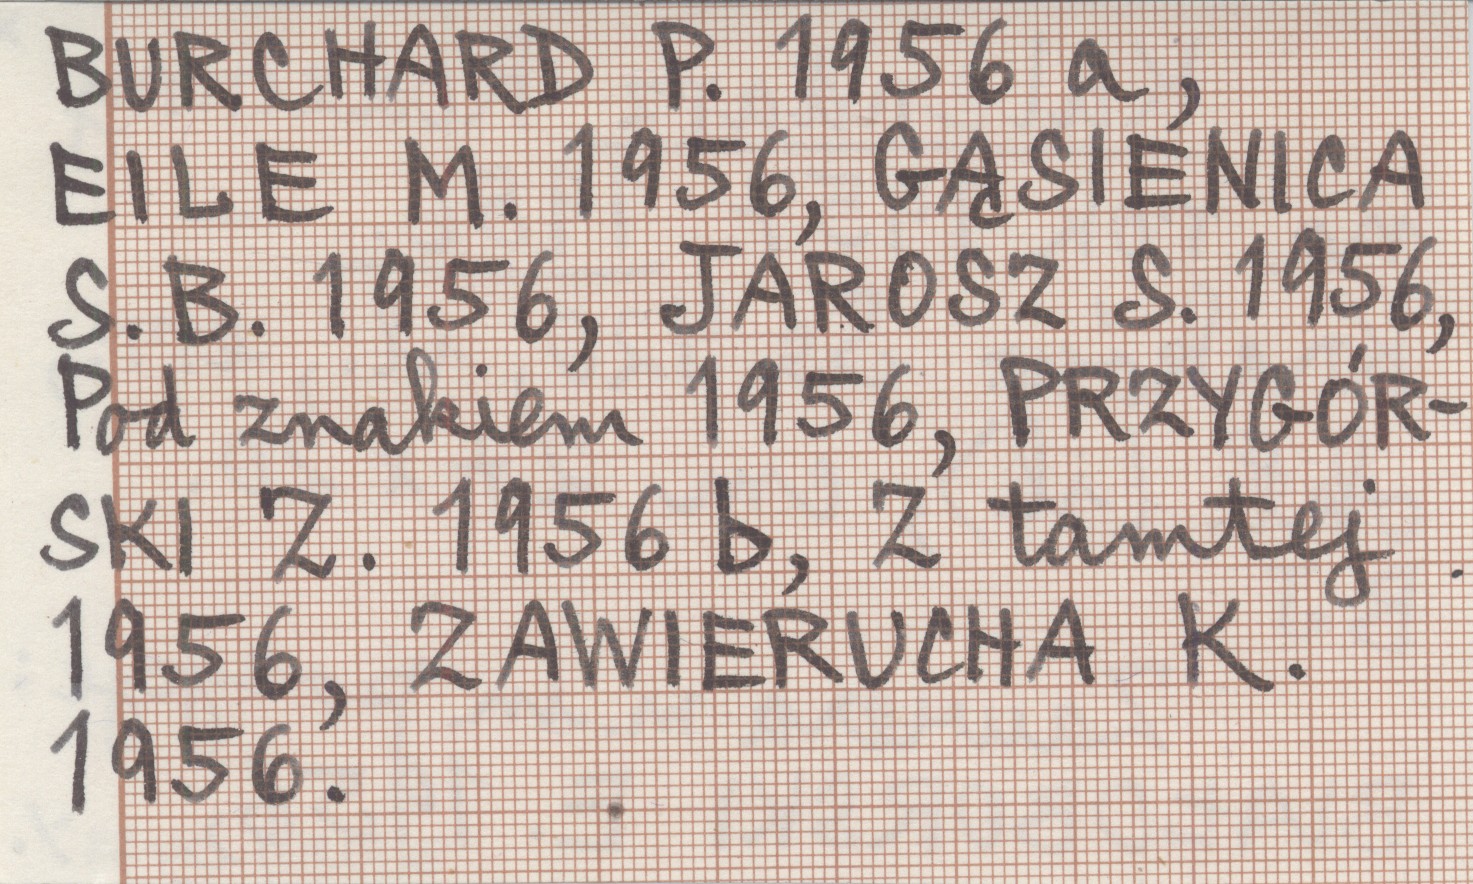 BURCHARD P. 1956 a,
EILE M. 1956, GĄSIENICA
S. B. 1956, JAROSZ S. 1956,
Pod znakiem 1956, PRZYGÓR-
SKI Z. 1956 b, Z tamtej
1956, ZAWIERUCHA K.
1956.